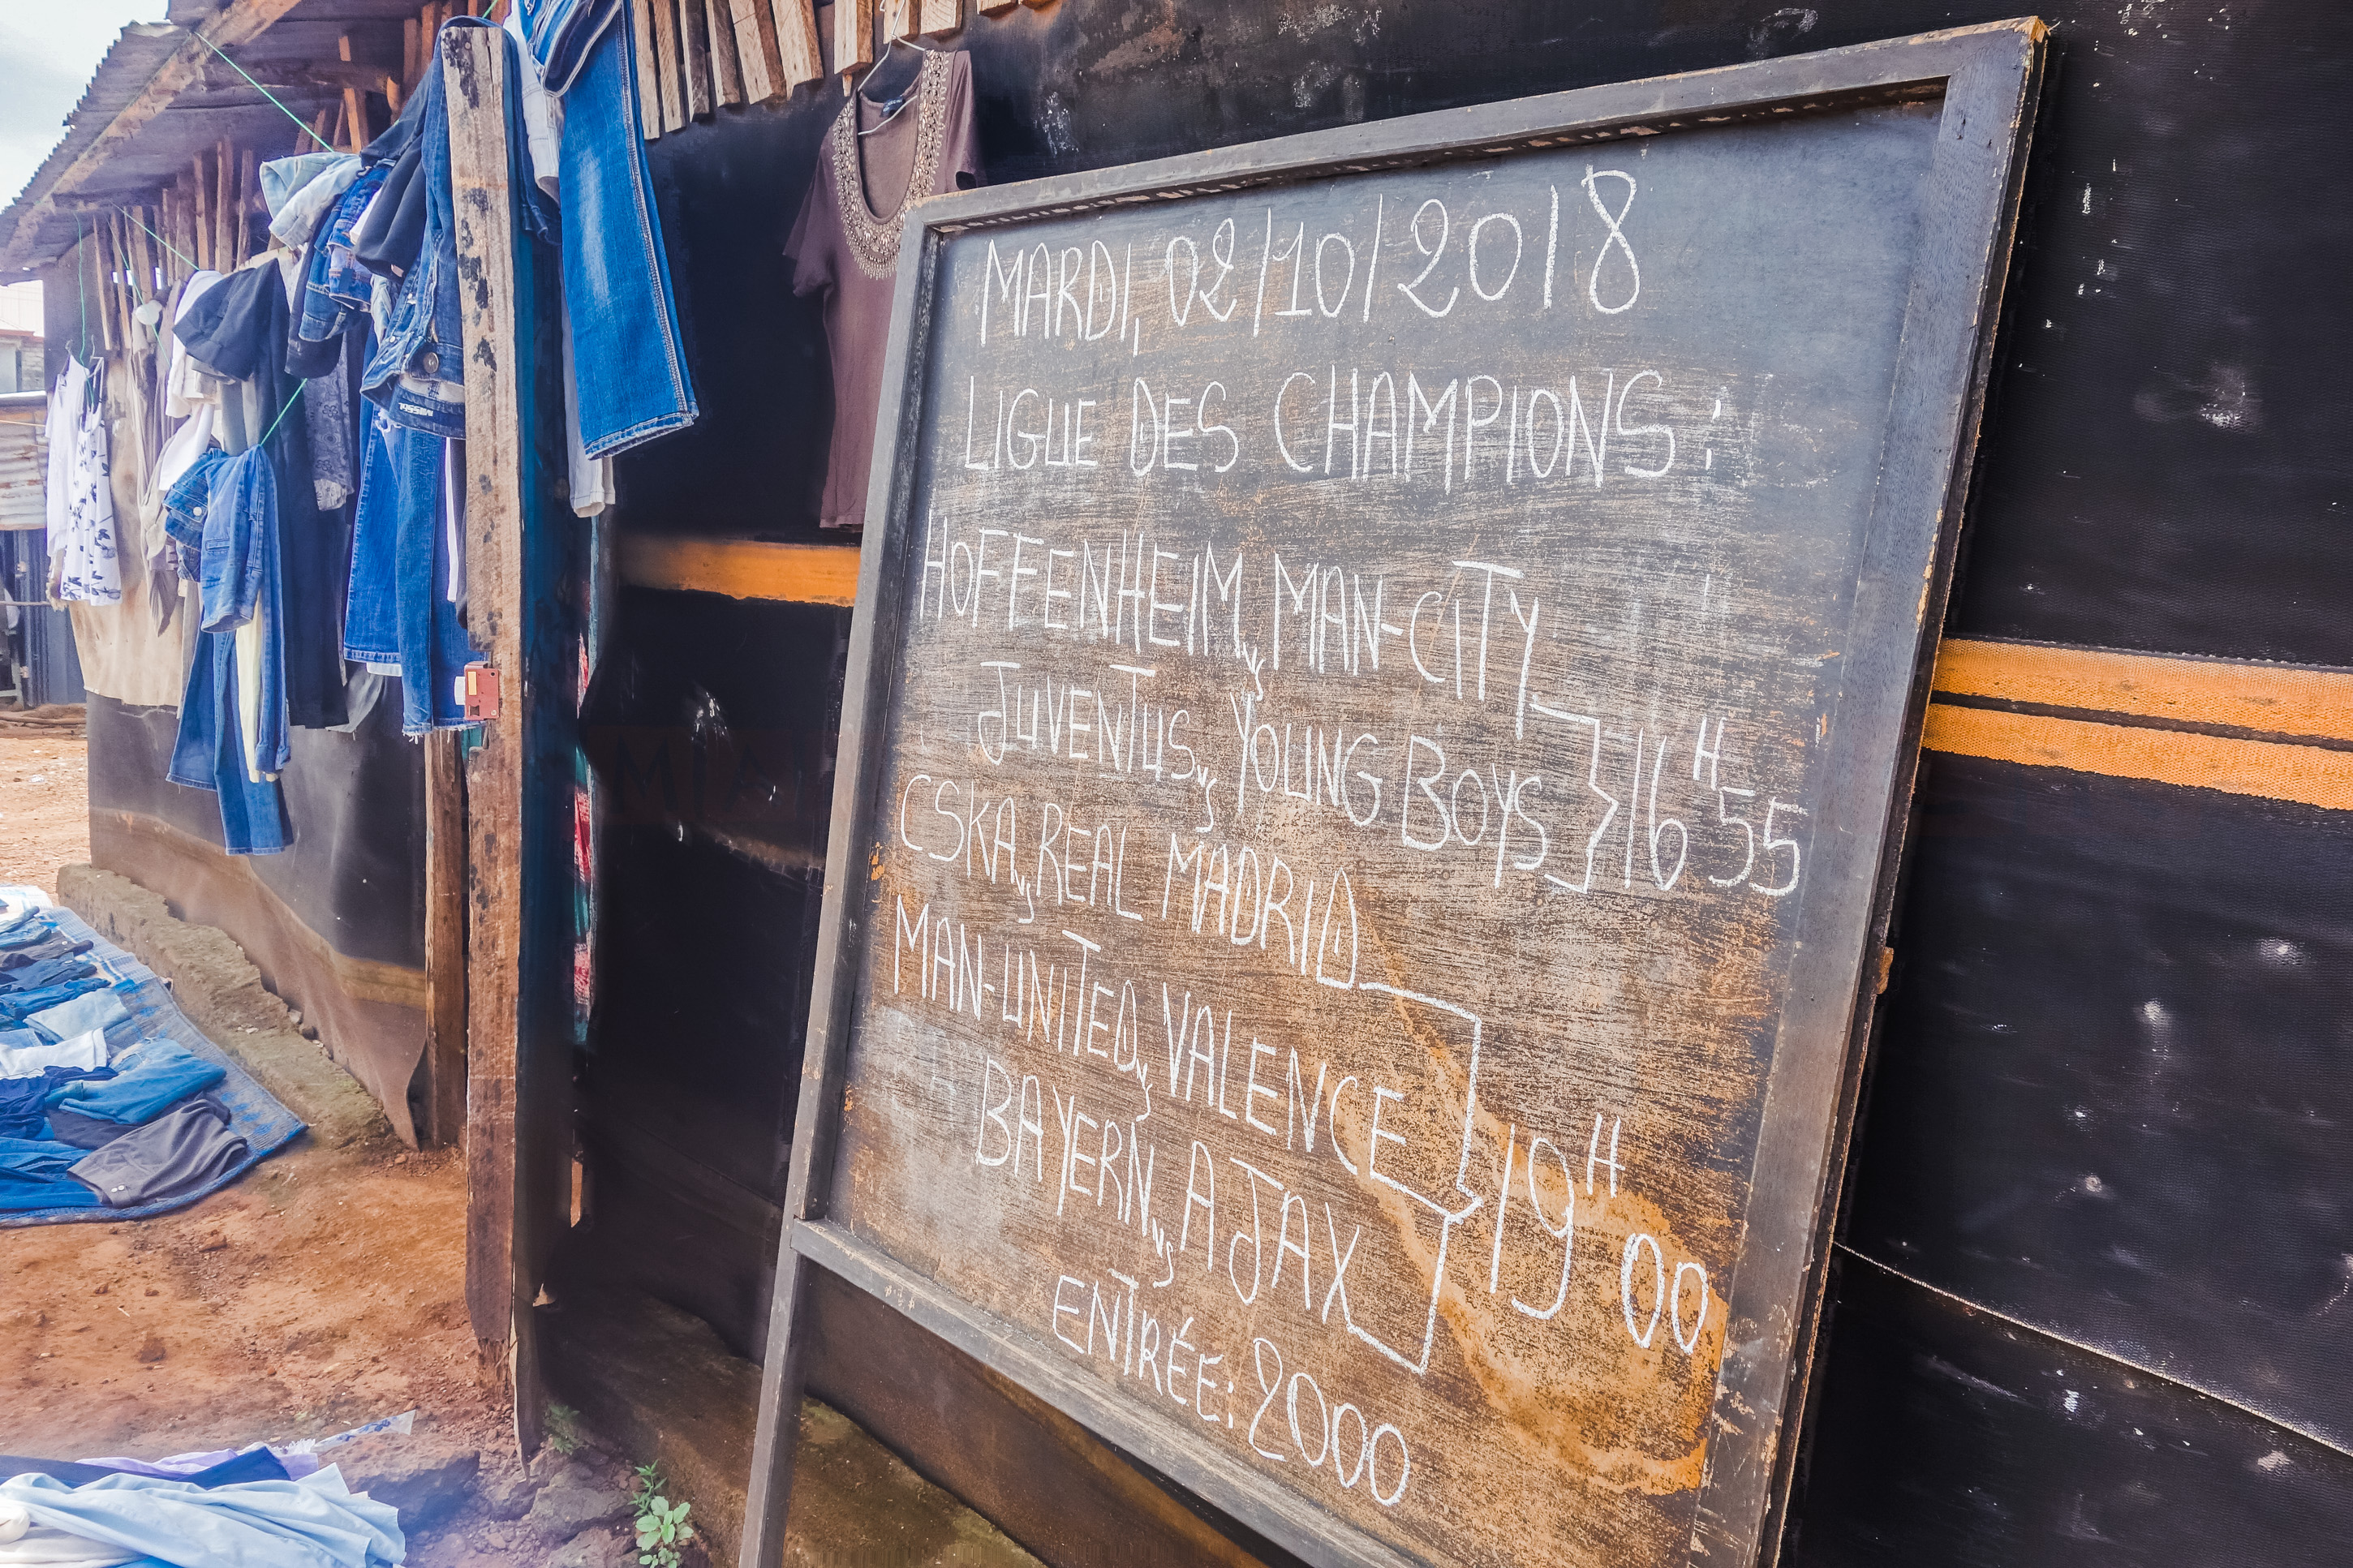 MARDI, 02/10/2018
LIGUE DES CHAMPIONS:
HOFFENHEIM vs MAN-CITY
JUVENTUS vs YOUNG BOYS } 16H55
CSKA vs REAL MADRID
MAN-UNITED vs VALENCE } 19H00
BAYERN vs AJAX
ENTRÉE: 2000